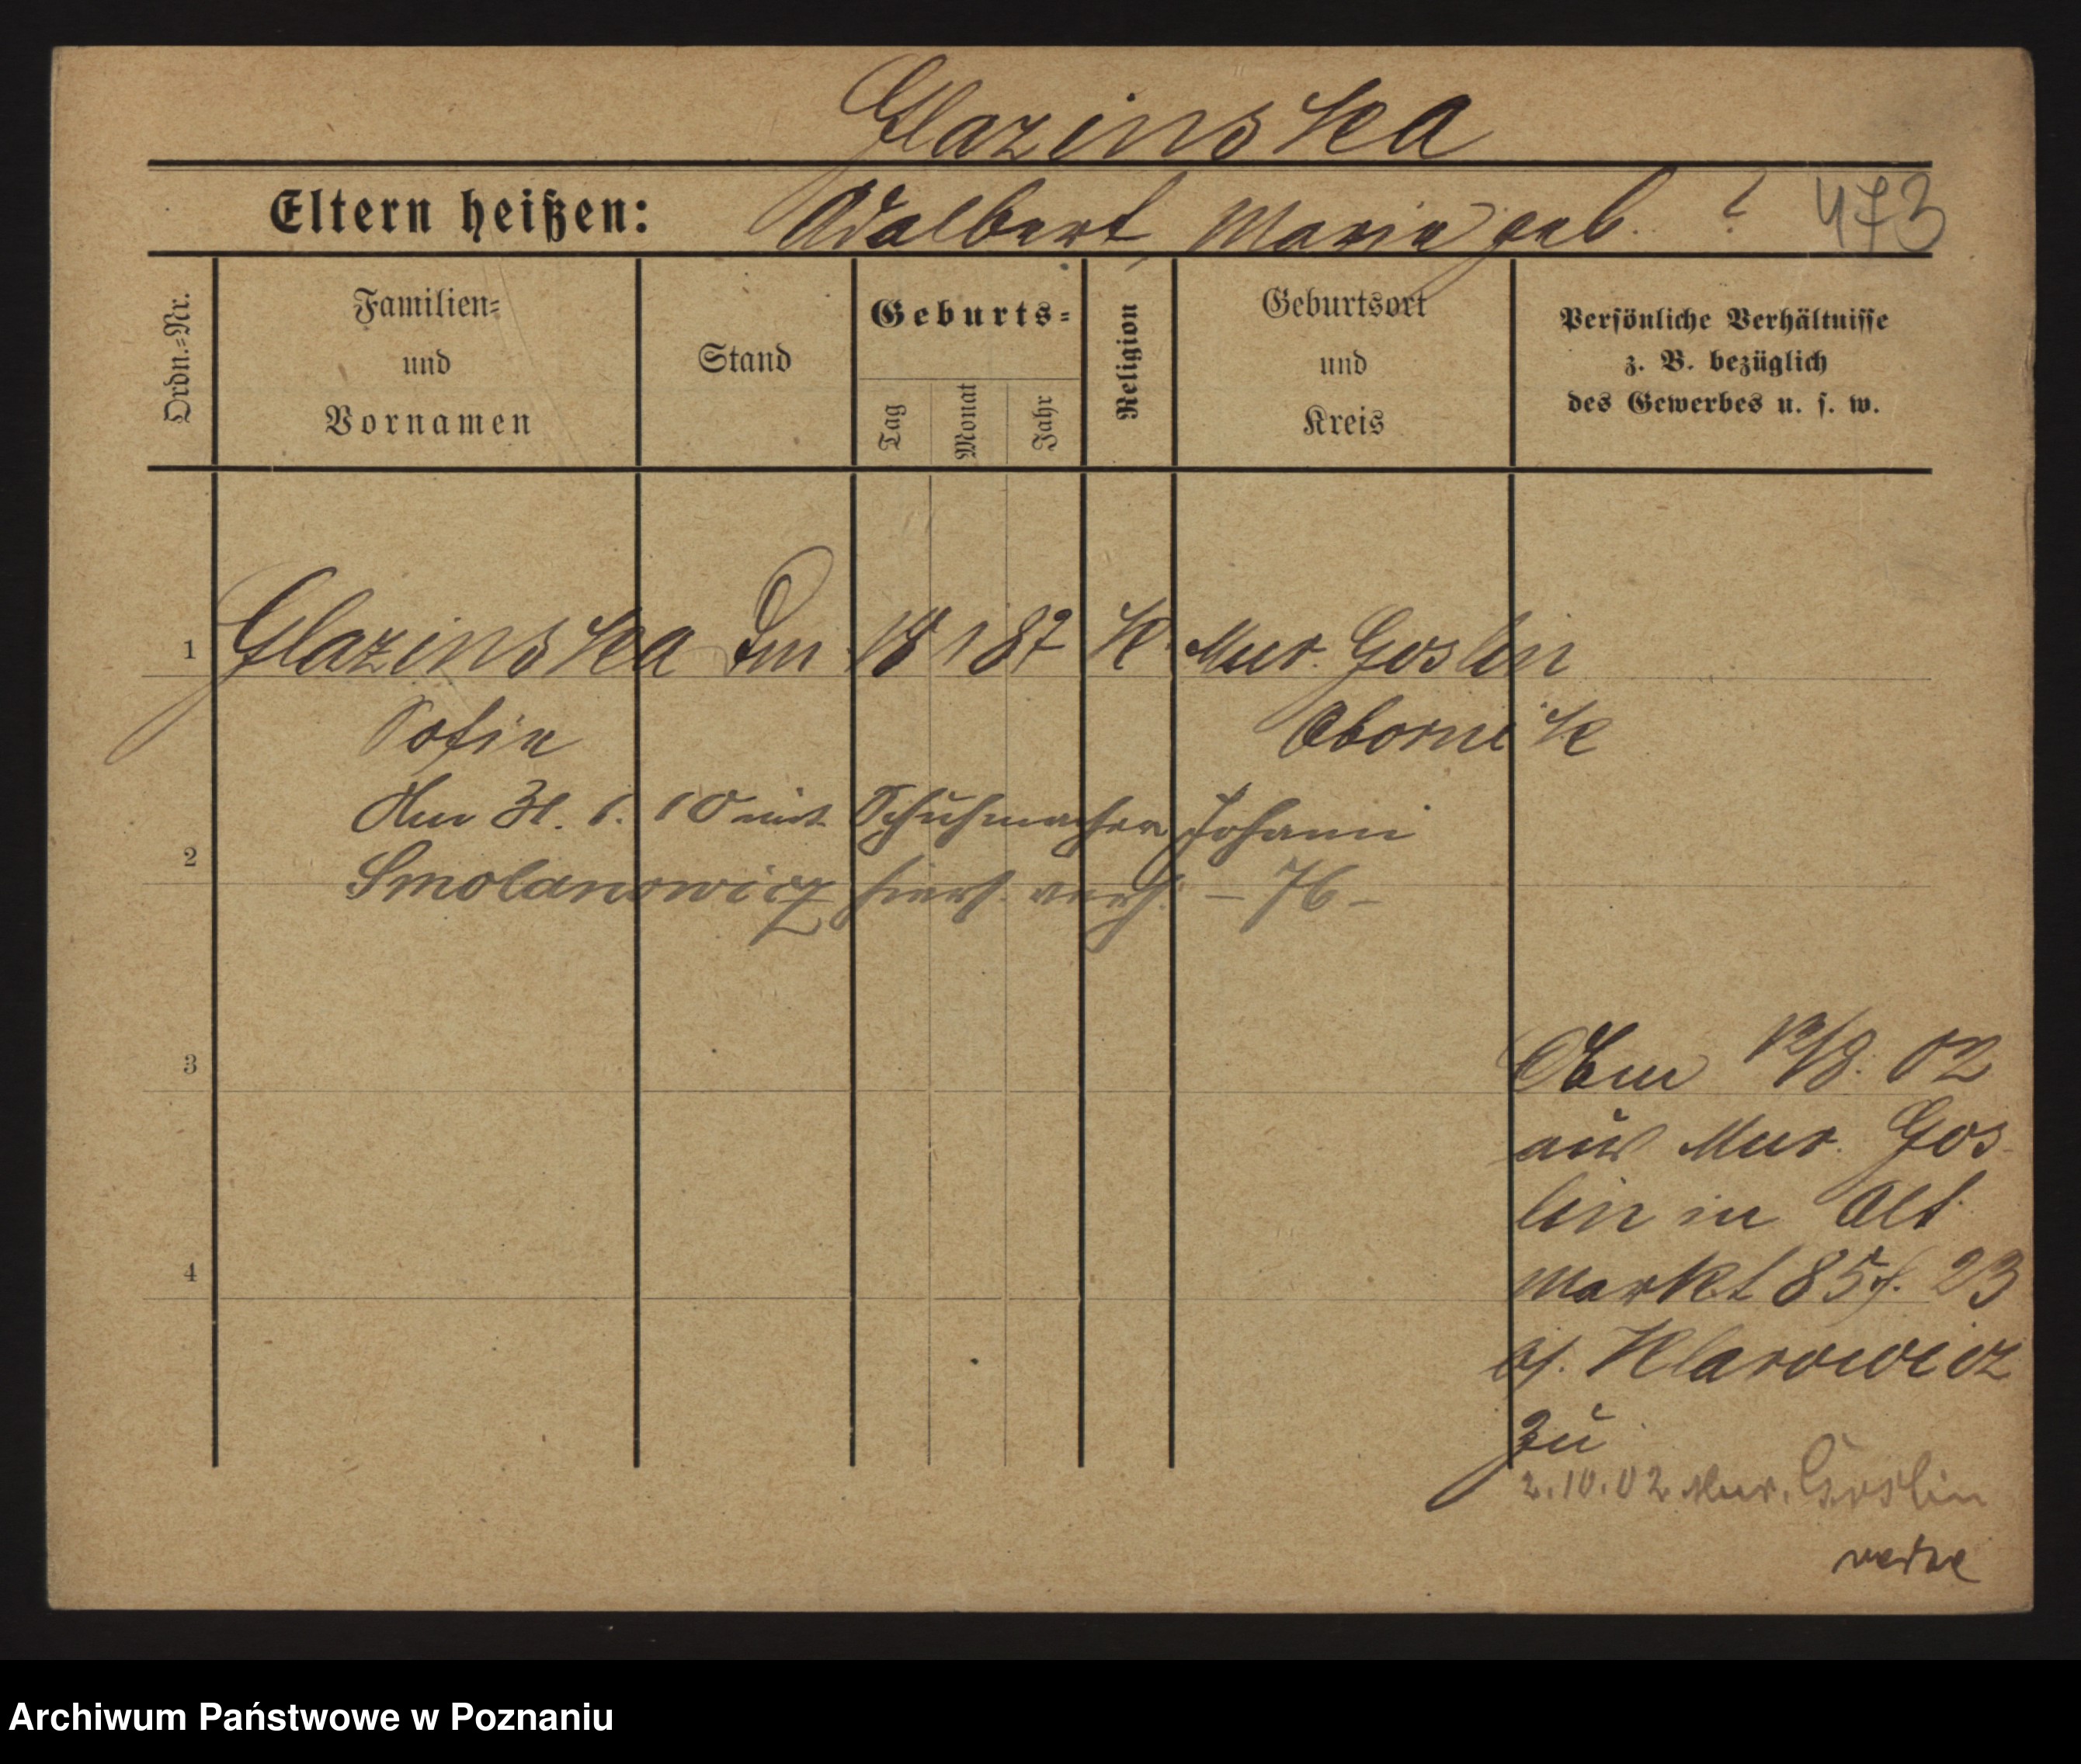 Glazinska
Eltern heißen: Adalbert Marie geb. ? 473
Ordn.-Nr.
Familien-
und
Vornamen
Stand
Geburts-
Tag
Monat
Jahr
Religion
Geburtsort
und
Kreis
Persönliche Verhältnisse
z. B. bezüglich
des Gewerbes u. s. w.
1 Glazinska 18 1 87 K. Mur. Goslin
Sofie Obornik
31. 1. 10 mit Schuhmacher Johann
2
Smolanowicz hiers. verh. - 76 -
3
02
aus Mur. Gos-
lin in Alt
4
markt 85 f. 23
bf. Klarowicz
zu
2.10.02 Mur. Goslin
Archiwum Państwowe w Poznaniu